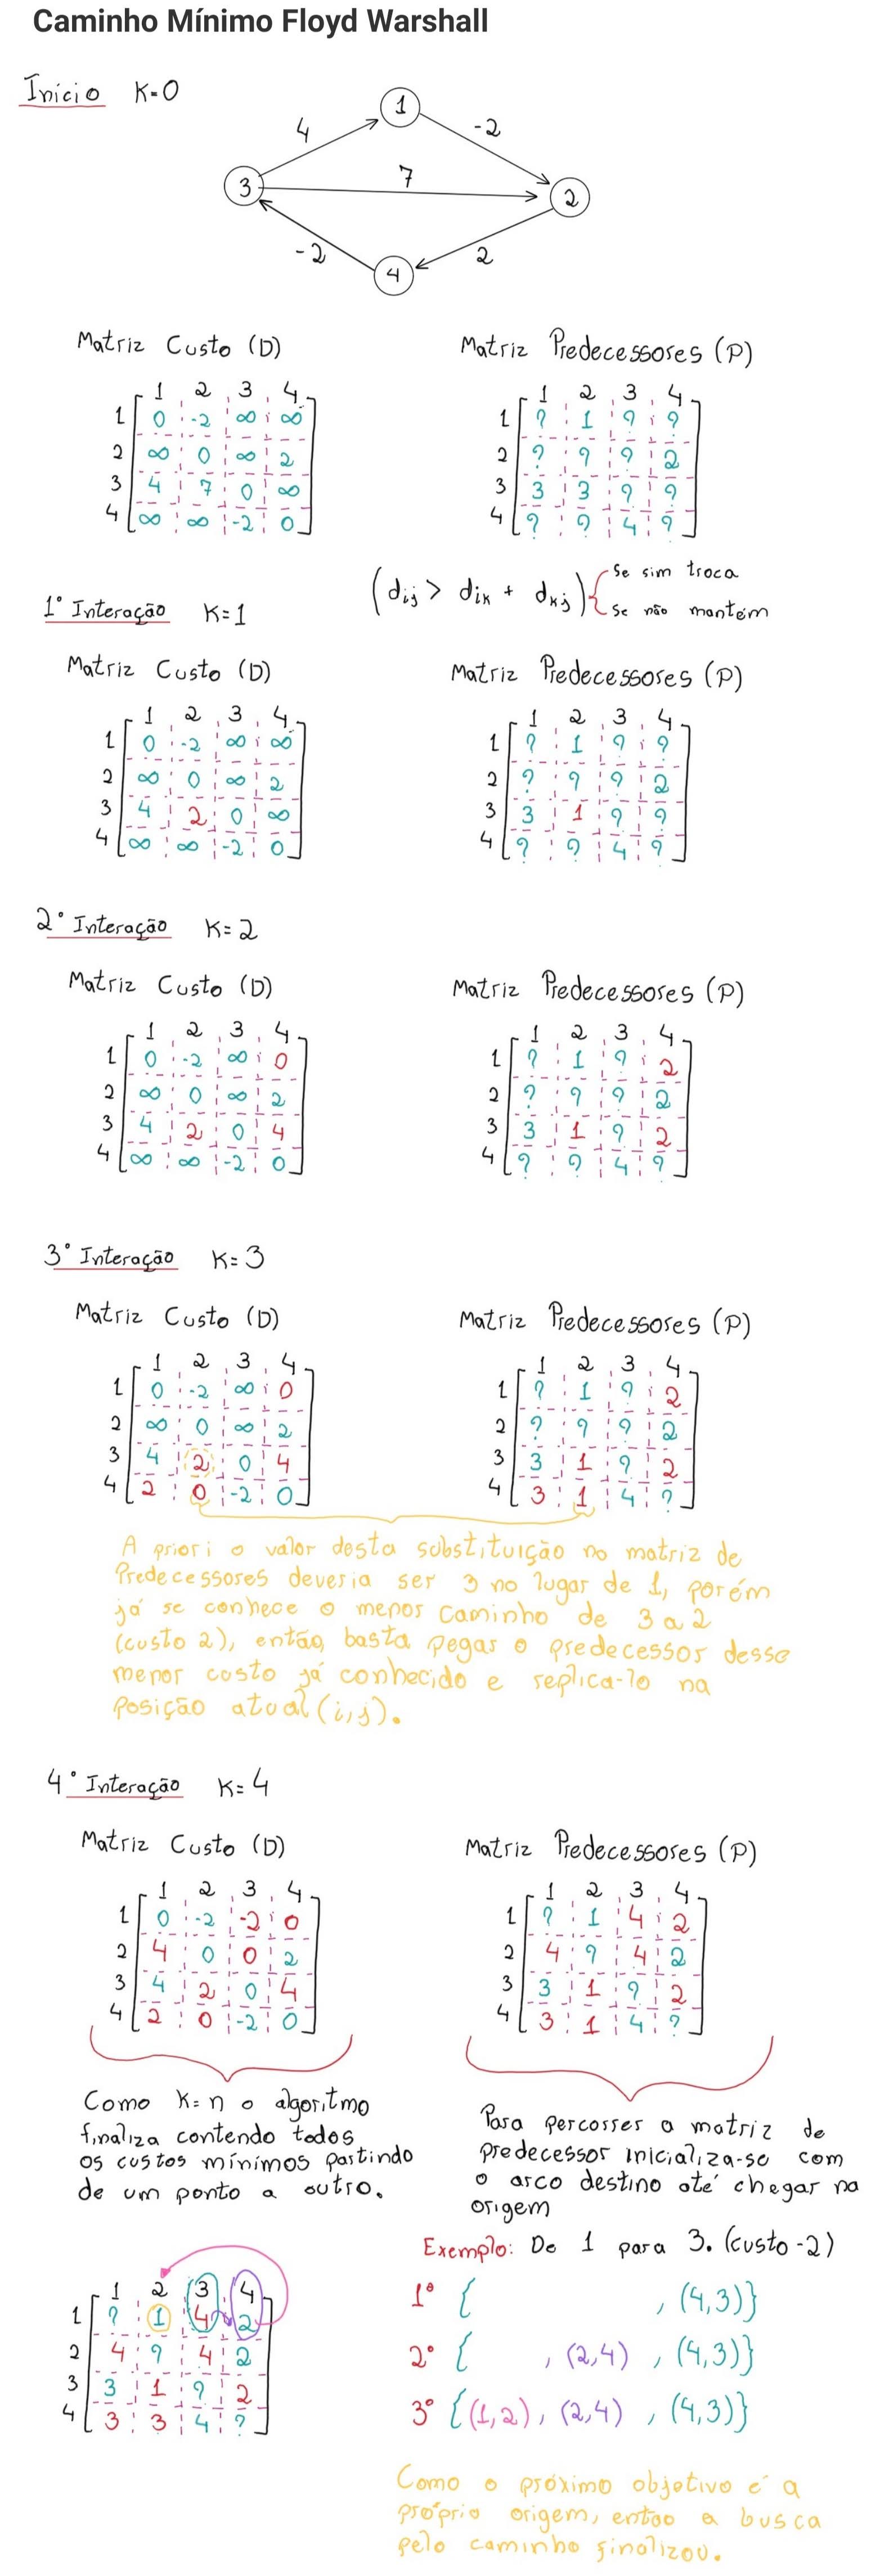 Caminho Mínimo Floyd Warshall
Início K=0
1
4
-2
7
3
2
-2
2
4
Matriz Custo (D)
1 2 3 4
1 0 -2 ∞ ∞
2 ∞ 0 ∞ 2
3 4 7 0 ∞
4 ∞ ∞ -2 0
Matriz Predecessores (P)
1 2 3 4
1 ? 1 ? ?
2 ? ? ? 2
3 3 3 ? ?
4 ? ? 4 ?
(dij > dik + dkj) { se sim troca
se não mantém
1° Interação K=1
Matriz Custo (D)
1 2 3 4
1 0 -2 ∞ ∞
2 ∞ 0 ∞ 2
3 4 2 0 ∞
4 ∞ ∞ -2 0
Matriz Predecessores (P)
1 2 3 4
1 ? 1 ? ?
2 ? ? ? 2
3 3 1 ? ?
4 ? ? 4 ?
2° Interação K=2
Matriz Custo (D)
1 2 3 4
1 0 -2 ∞ 0
2 ∞ 0 ∞ 2
3 4 2 0 4
4 ∞ ∞ -2 0
Matriz Predecessores (P)
1 2 3 4
1 ? 1 ? 2
2 ? ? ? 2
3 3 1 ? 2
4 ? ? 4 ?
3° Interação K=3
Matriz Custo (D)
1 2 3 4
1 0 -2 ∞ 0
2 ∞ 0 ∞ 2
3 4 2 0 4
4 2 0 -2 0
Matriz Predecessores (P)
1 2 3 4
1 ? 1 ? 2
2 ? ? ? 2
3 3 1 ? 2
4 3 1 4 ?
A priori o valor desta substituição no matriz de
Predecessores deveria ser 3 no lugar de 1, porém
já se conhece o menor caminho de 3 a 2
(custo 2), então basta pegar o predecessor desse
menor custo já conhecido e replica-lo na
posição atual (i,j).
4° Interação K=4
Matriz Custo (D)
1 2 3 4
1 0 -2 -2 0
2 4 0 0 2
3 4 2 0 4
4 2 0 -2 0
Matriz Predecessores (P)
1 2 3 4
1 ? 1 4 2
2 4 ? 4 2
3 3 1 ? 2
4 3 1 4 ?
Como K=n o algoritmo
finaliza contendo todos
os custos mínimos partindo
de um ponto a outro.
Para percorrer a matriz de
predecessor inicializa-se com
o arco destino até chegar na
origem
Exemplo: De 1 para 3. (custo -2)
1 2 3 4
1 ? 1 4 2
2 4 ? 4 2
3 3 1 ? 2
4 3 3 4 ?
1° { , (4,3)}
2° { , (2,4) , (4,3)}
3° {(1,2), (2,4) , (4,3)}
Como o próximo objetivo é a
própria origem, entao a busca
pelo caminho finalizou.